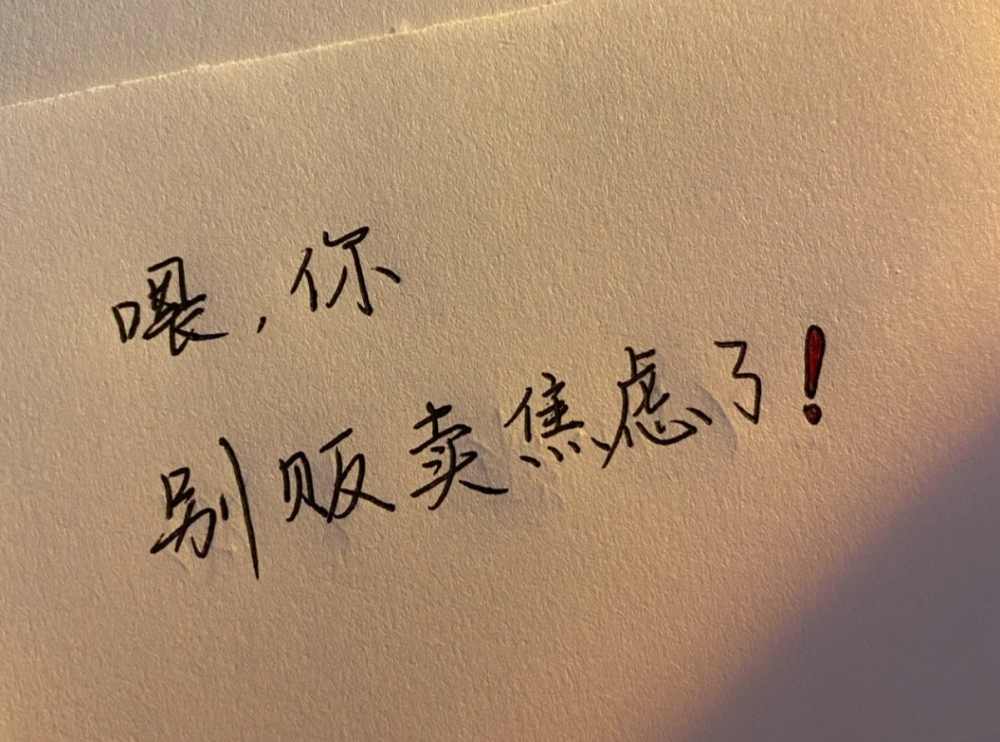 喂，你
别贩卖焦虑了！